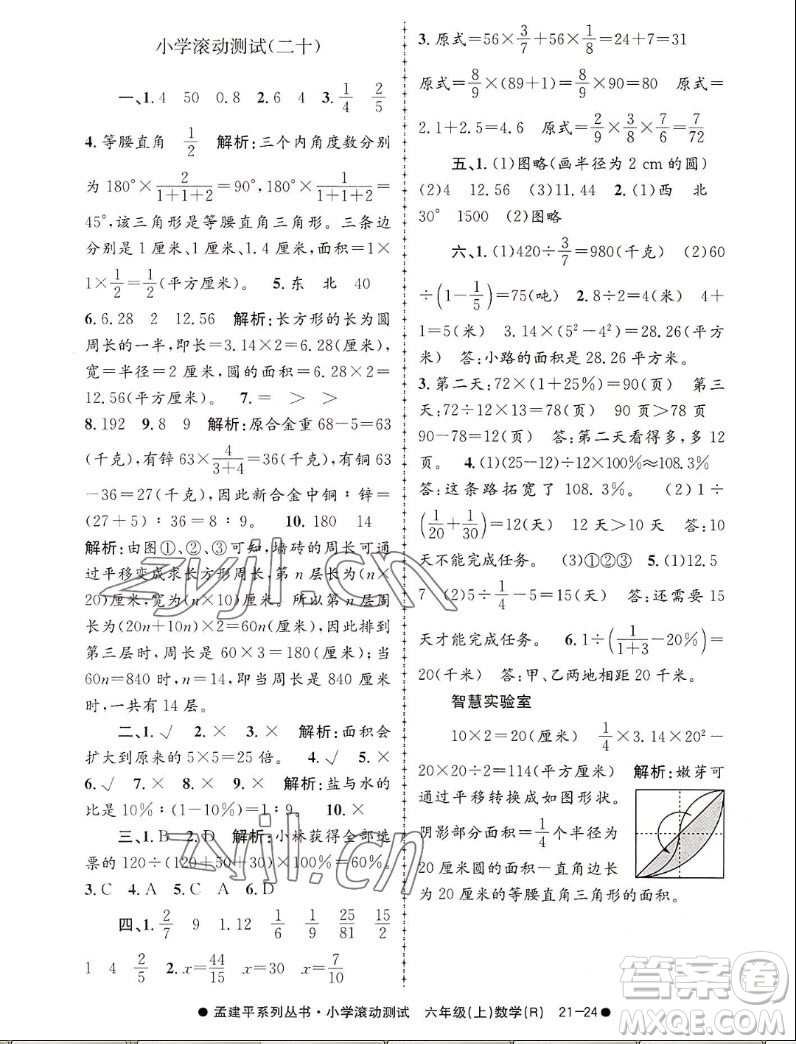 小学滚动测试(二十)
一、1. 4 50 0.8 2. 6 4 3. 1/4 2/5
4. 等腰直角 1/2 解析:三个内角度数分别
为180°×2/(1+1+2)=90°,180°×1/(1+1+2)=
45°,该三角形是等腰直角三角形。三条边
分别是1厘米、1厘米、1.4厘米,面积=1×
1×1/2=1/2(平方厘米) 5. 东 北 40
6. 6.28 2 12.56 解析:长方形的长为圆
周长的一半,即长=3.14×2=6.28(厘米),
宽=半径=2厘米,面积=6.28×2=
12.56(平方厘米) 7. = > >
8. 192 9. 8 9 解析:原合金重68-5=63
(千克),有锌63×4/(3+4)=36(千克),有铜63
-36=27(千克)。因此新合金中铜∶锌=
(27+5)∶36=8∶9。 10. 180 14
解析:由图①、②、③可知,墙砖的周长可通
过平移变成求长方形周长。第n层长为(n×
20)厘米,宽为(n×10)厘米。所以第n层周
长为(20n+10n)×2=60n(厘米),因此排到
第三层时,周长是60×3=180(厘米);当
60n=840时,解得n=14,即周长是840厘
米时,一共有14层。
二、1. √ 2. × 3. × 解析:面积会
扩大到原来的5×5=25倍。 4. √ 5. ×
6. √ 7. × 8. × 9. × 解析:盐与水的
比是10%∶(1-10%)=1∶9。 10. ×
三、1. B 2. D 解析:小林获得全部选
票的120÷(120+50+30)×100%=60%。
3. C 4. A 5. A 6. D
四、1. 2/7 9 1.12 1/6 25/81 15/2
1 4 2/5 2. x=44/15 x=30 x=9/16
3. 原式=56×3/7+56×1/8=24+7=31
原式=8/9×(89+1)=8/9×90=80
2.1+2.5=4.6 原式=2/9×3/8×7/6=7/72
五、1. (1)图略(画半径为2 cm的圆)
(2)4 12.56 (3)11.44 2. (1)西 北
30° 1500 (2)图略
六、1. (1)420÷3/7=980(千克) (2)60
÷(1-1/5)=75(吨) 2. 8÷2=4(米) 4+
1=5(米) 3.14×(5²-4²)=28.26(平方
米) 答:小路的面积是28.26平方米。
3. 第二天:72×(1+25%)=90(页) 第三
天:72÷12×13=78(页) 90页>78页
90-78=12(页) 答:第二天看得多,多12
页。 4. (1)(25-12)÷12×100%≈108.3%
答:这条路拓宽了108.3%。 (2)1÷
(1/20+1/30)=12(天) 12天>10天 答:10
天不能完成任务。 (3)①②③ 5. (1)12.5
7 (2)5÷1/4-5=15(天) 答:还需要15
天才能完成任务。 6. 1÷(1/(1+3)-20%)=
20(千米) 答:甲、乙两地相距20千米。
智慧实验室
10×2=20(厘米) 1/4×3.14×20²-
20×20÷2=114(平方厘米) 解析:嫩芽可
通过平移转换成如图形状。
阴影部分面积=1/4个半径为
20厘米圆的面积-直角边长
为20厘米的等腰直角三角形的面积。
zyjl.cn
zyjl.cn
答案卷
●孟建平系列丛书·小学滚动测试 六年级(上)数学(R) 21-24●